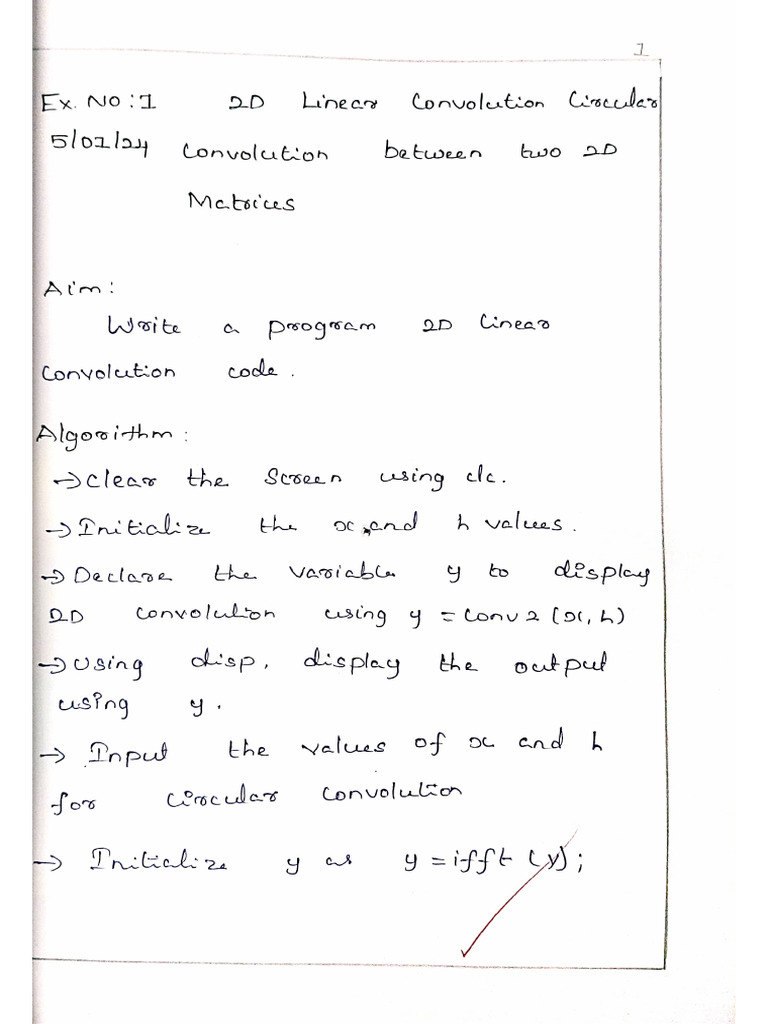 1
Ex. NO : 1 2D Linear Convolution Circular
5/01/24 Convolution between two 2D
Matrices
Aim :
Write a program 2D linear
Convolution code .
Algorithm :
→ Clear the Screen using clc.
→ Initialize the x and h values .
→ Declare the variable y to display
2D convolution using y = Conv2 (x, h)
→ Using disp, display the output
using y .
→ Input the values of x and h
for circular convolution
→ Initialize y as y = ifft (y) ;